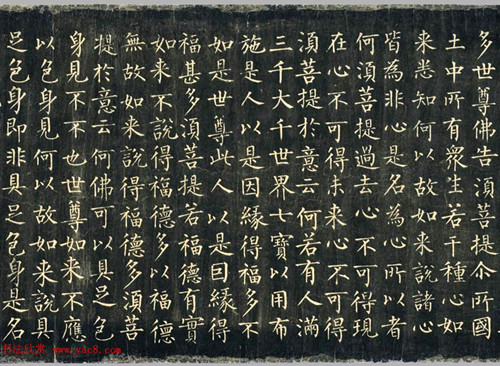 多世尊佛告須菩提尒所國
土中所有衆生若干種心如
来悉知何以故如来說諸心
皆為非心是名為心所以者
何須菩提過去心不可得現
在心不可得未来心不可得
須菩提於意云何若有人滿
三千大千世界七寶以用布
施是人以是因緣得福多不
如是世尊此人以是因緣得
福甚多須菩提若福德有實
如来不說得福德多以福德
無故如来說得福德多須菩
提於意云何佛可以具足色
身見不不也世尊如来不應
以色身見何以故如来說具
足色身即非具足色身是名
书法欣赏 www.yac8.com